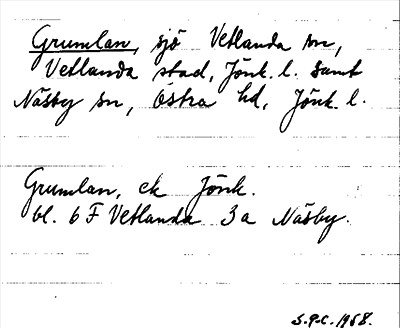 Grumlan, sjö Vetlanda sn,
Vetlanda stad, Jönk. l. samt
Näsby sn, Östra hd, Jönk. l.
Grumlan, ek Jönk.
bl. 6 F Vetlanda 3a Näsby.
S.P.C. 1958.